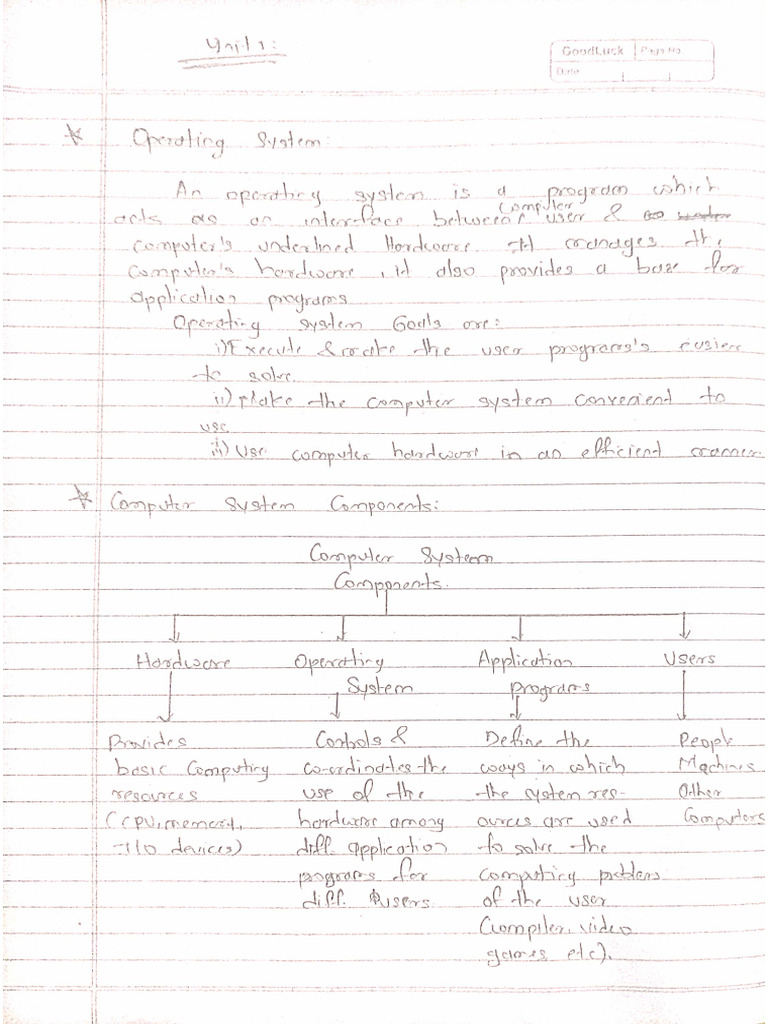 Unit 1:
GoodLuck Page No.
Date
☆ Operating System:
An operating system is a program which
acts as an interface between computer user &
computer's underlined Hardware. It manages the
Computer's hardware, it also provides a base for
application programs
Operating system Goals are:
i) Execute & create the user programs's easier
to solve.
ii) Make the computer system convenient to
use
iii) Use computer hardware in an efficient manner.
☆ Computer System Components:
Computer System
Components.
Hardware Operating Application Users
System programs
Provides Controls & Define the People
basic Computing co-ordinates the ways in which Machines
resources use of the the system res- Other
(CPU, memory, hardware among ources are used Computers
I/O devices) diff. application to solve the
programs for computing problems
diff. users of the user
(Compiler, video
games etc).